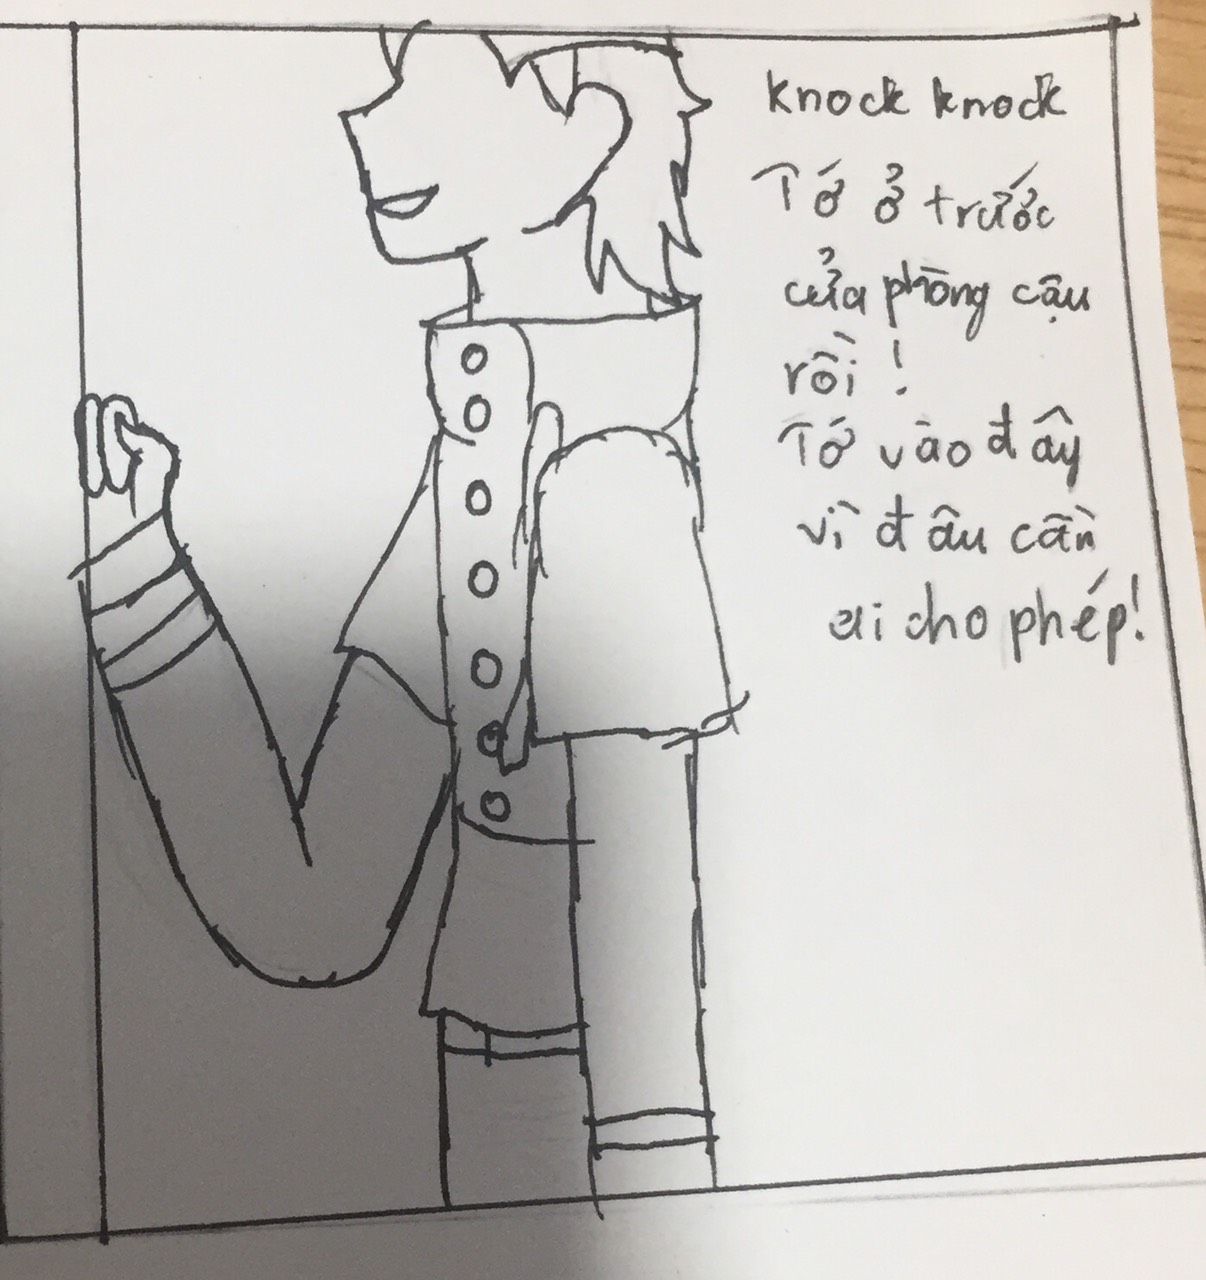 knock knock
Tớ ở trước
cửa phòng cậu
rồi !
Tớ vào đây
vì đâu cần
ai cho phép!